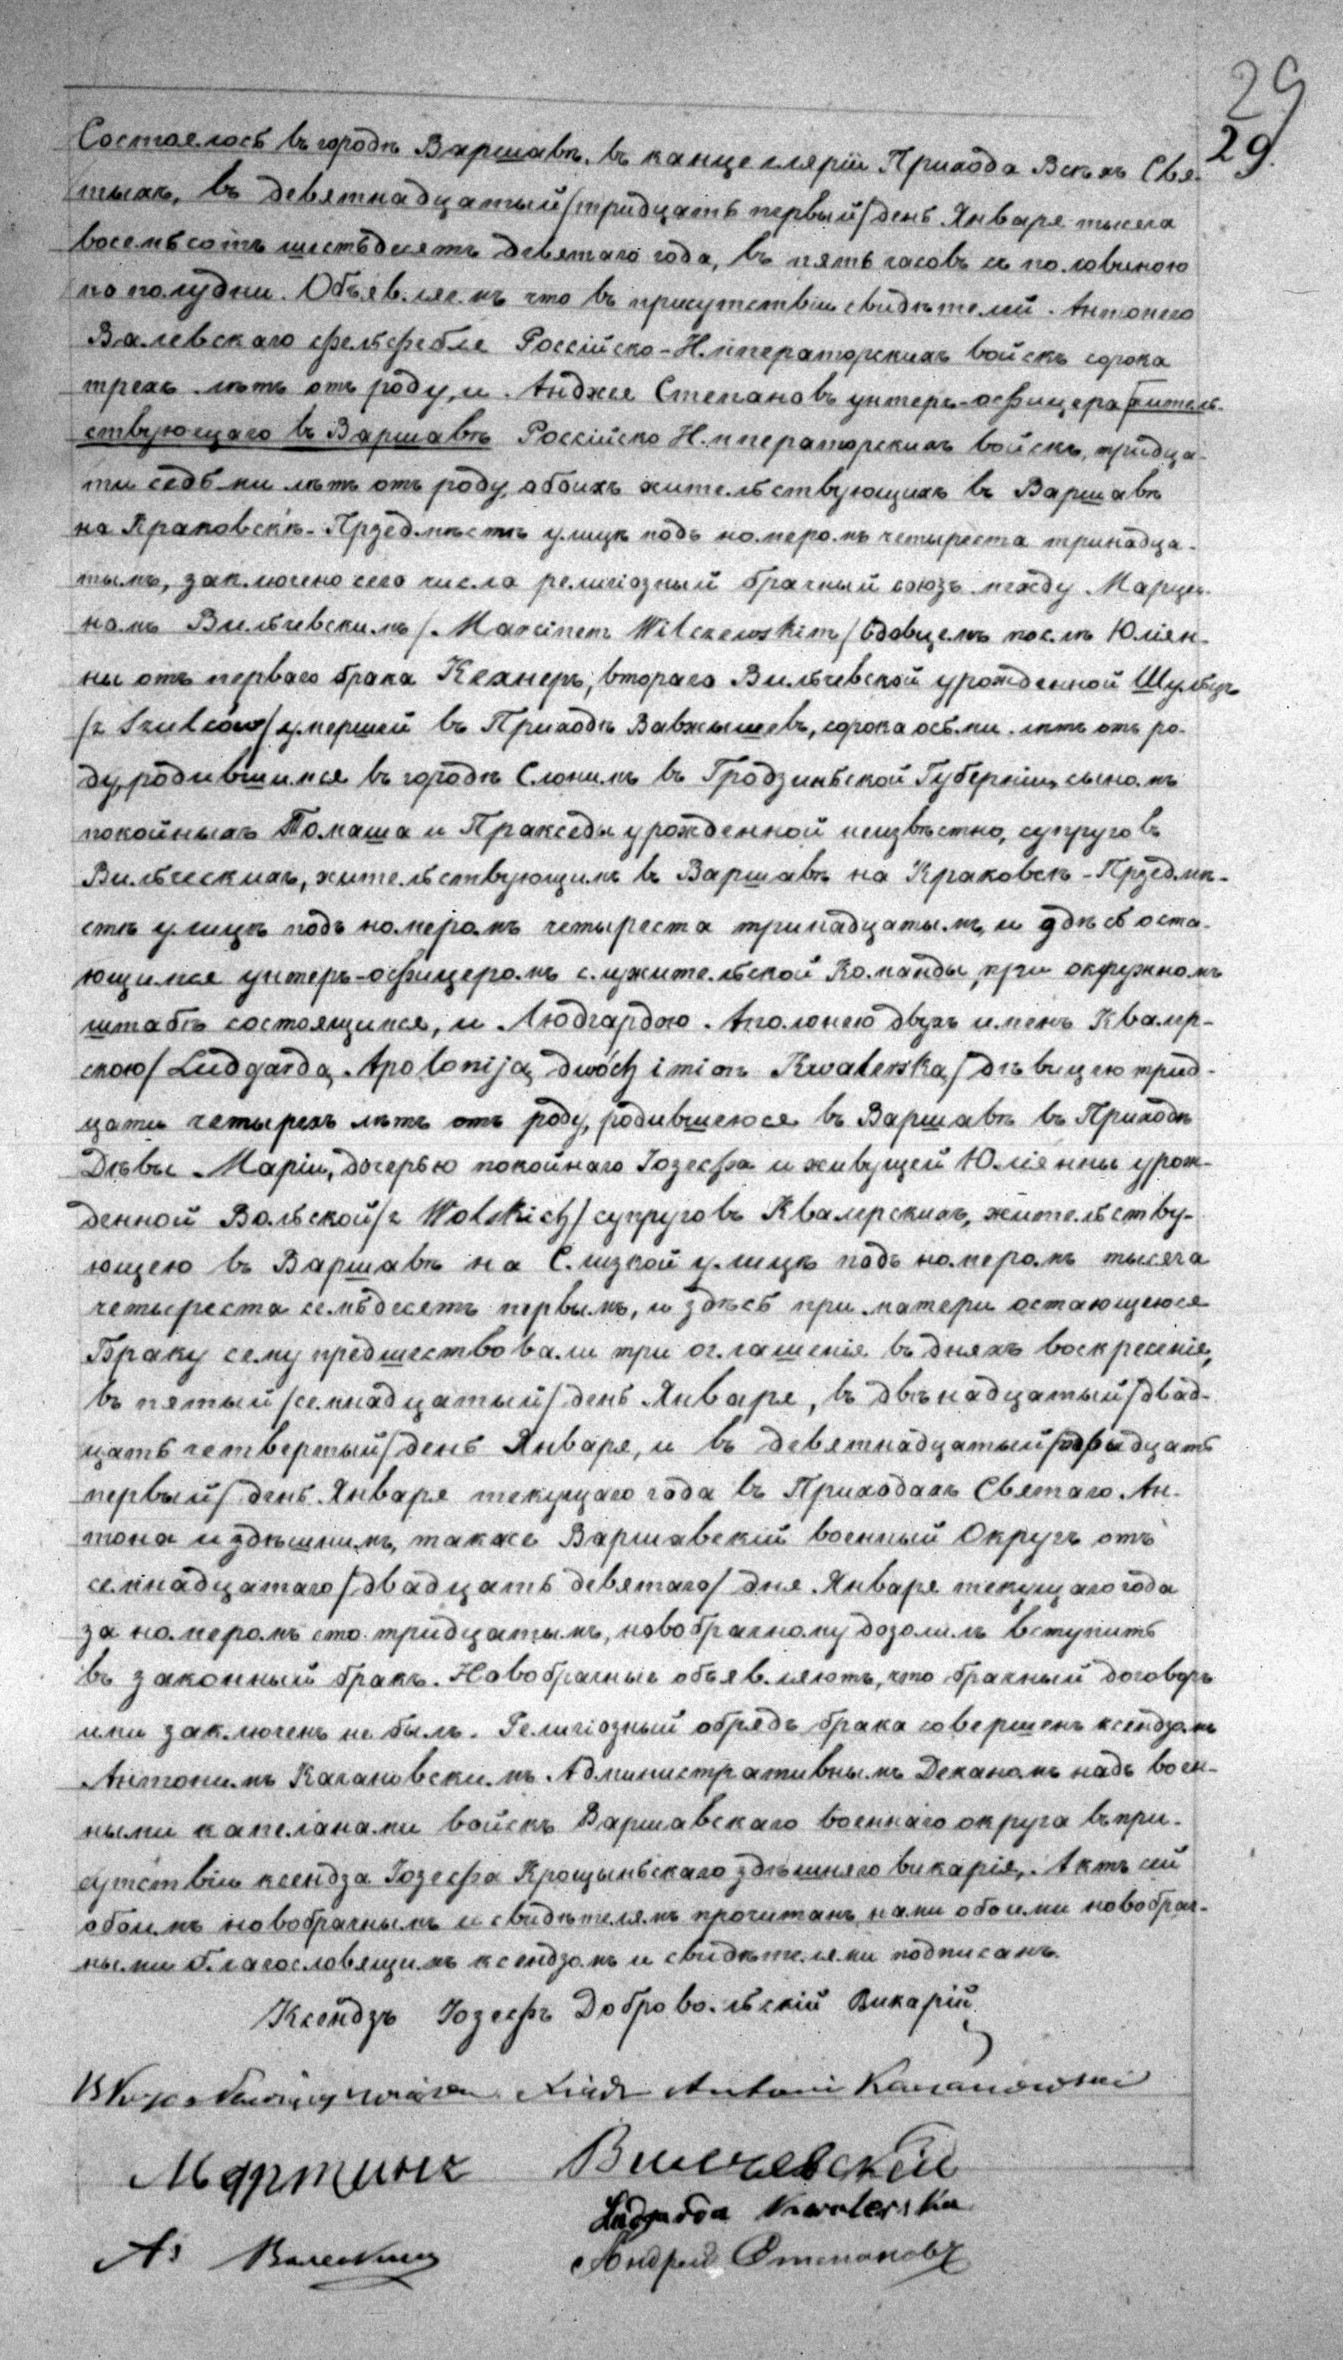 29
29.
Состоялось въ городѣ Варшавѣ въ канцеляріи Прихода Всѣхъ Свя-
тыхъ, въ девятнадцатый /тридцать первый/ день Января тысеча
восемьсотъ шестьдесятъ девятаго года, въ пять часовъ съ половиною
по полудни. Объявляемъ что въ присутствіи свидѣтелей Антонего
Валевскаго фельфебле Россійско-Императорскихъ войскъ сорока
трехъ лѣтъ отъ роду, и Анджея Степановъ унтеръ-офицера житель-
ствующаго въ Варшавѣ Россійско Императорскихъ войскъ, тридца-
ти седьми лѣтъ отъ роду, обоихъ жительствующихъ въ Варшавѣ
на Краковскѣ-Прзедмѣстѣ улицѣ подъ номеромъ четыреста тринадца-
тымъ, заключено сего числа религіозный брачный союзъ между Марци-
номъ Вильчевскимъ /Marcinem Wilczewskim/ вдовцемъ послѣ Юліян-
ны отъ перваго брака Кехнеръ, втораго Вильчевской урожденной Шульцъ
/z Szulców/ умершей въ Приходѣ Вавжышевъ, сорока осьми лѣтъ отъ ро-
ду, родившимся въ городѣ Слонимѣ въ Гродзиньской Губерніи, сыномъ
покойныхъ Томаша и Пракседы урожденной неизвѣстно, супруговъ
Вильческихъ, жительствующимъ въ Варшавѣ на Краковскѣ-Прзедмѣ-
стѣ улицѣ подъ номеромъ четыреста тринадцатымъ, и здѣсь оста-
ющимся унтеръ-офицеромъ служительской Команды, при окружномъ
штабѣ состоящимся, и Людгардою Аполонею двухъ именъ Квалер-
скою /Ludgardą Apoloniją dwóch imion Kwalerską/ дѣвицею трид-
цати четырехъ лѣтъ отъ роду, родившеюся въ Варшавѣ въ Приходѣ
Дѣвы Маріи, дочерью покойнаго Іозефа и живущей Юліянны урож-
денной Вольской /z Wolskich/ супруговъ Квалерскихъ, жительству-
ющею въ Варшавѣ на Слизкой улицѣ подъ номеромъ тысяча
четыреста семьдесятъ первымъ, и здѣсь при матери остающеюся
Браку сему предшествовали три оглашенія въ дняхъ воскресеніе,
въ пятый /семнадцатый/ день Января, въ двѣнадцатый /двад-
цать четвертый/ день Января, и въ девятнадцатый /тридцать
первый/ день Января текущаго года въ Приходахъ Святаго Ан-
тона и здѣшнимъ, также Варшавскій военный Округъ отъ
семнадцатаго /двадцать девятаго/ дня Января текущаго года
за номеромъ сто тридцатымъ, новобрачному дозолилъ вступить
въ законный бракъ. Новобрачные объявляютъ, что брачный договоръ
ими заключенъ не былъ. Религіозный обрядъ брака совершенъ ксендзомъ
Антонимъ Качановскимъ Административнымъ Деканомъ надъ воен-
ными капеланами войскъ Варшавскаго военнаго округа въ при-
сутствіи ксендза Іозефа Крощыньскаго здѣшняго викарія, Актъ сей
обоимъ новобрачнымъ и свидѣтелямъ прочитанъ, нами обоими новобрач-
ными благословящимъ ксендзомъ и свидѣтелями подписанъ.
Ксендзъ Іозефъ Добровольскій Викарій
Antoni Kaczanowski
Мартинъ Вилчевскій
Ludgarda Kwalerska
Аз Валескии Андрей Степановъ